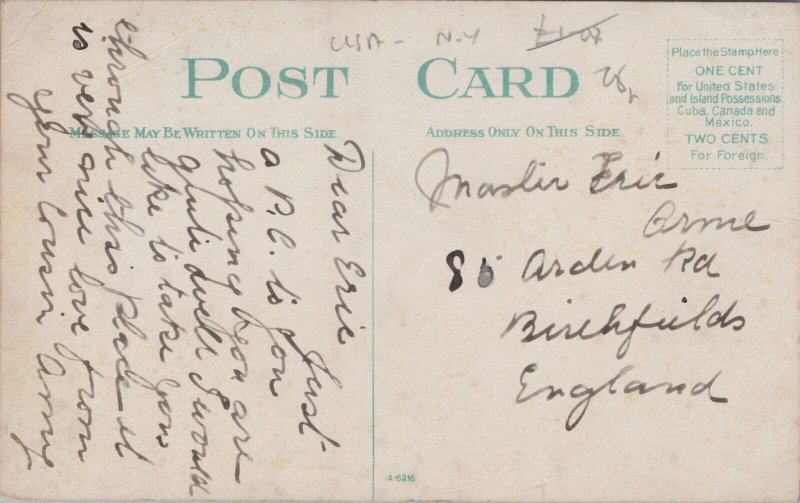 USA - N.Y £1.00
POST CARD
MESSAGE MAY BE WRITTEN ON THIS SIDE.
ADDRESS ONLY ON THIS SIDE.
Place the Stamp Here
ONE CENT
For United States
and Island Possessions
Cuba, Canada and
Mexico.
TWO CENTS
For Foreign.
Dear Eric
Just
a P.C. to you
hoping you are
quite well I would
like to take you
through this place it
is very nice love from
your Cousin
Master Eric
Orme
85 Arden Rd
Birchfields
England
A-5216